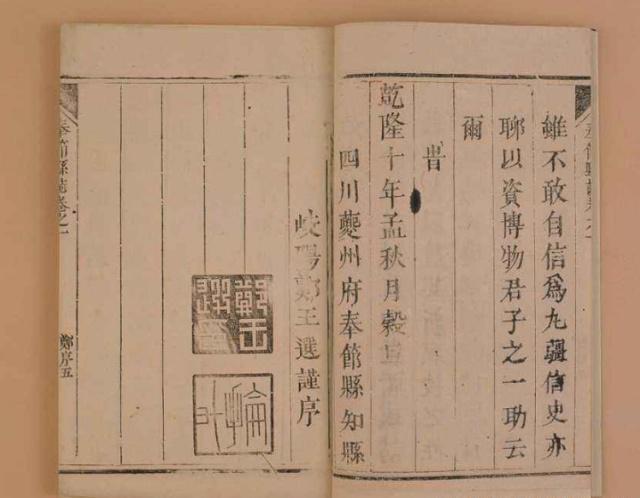 雖不敢自信爲九疆信史亦
聊以資博物君子之一助云
爾
旹
乾隆十年孟秋月穀旦
四川夔州府奉節縣知縣
岐陽鄭王選謹序
奉節縣誌卷之一
鄭序五